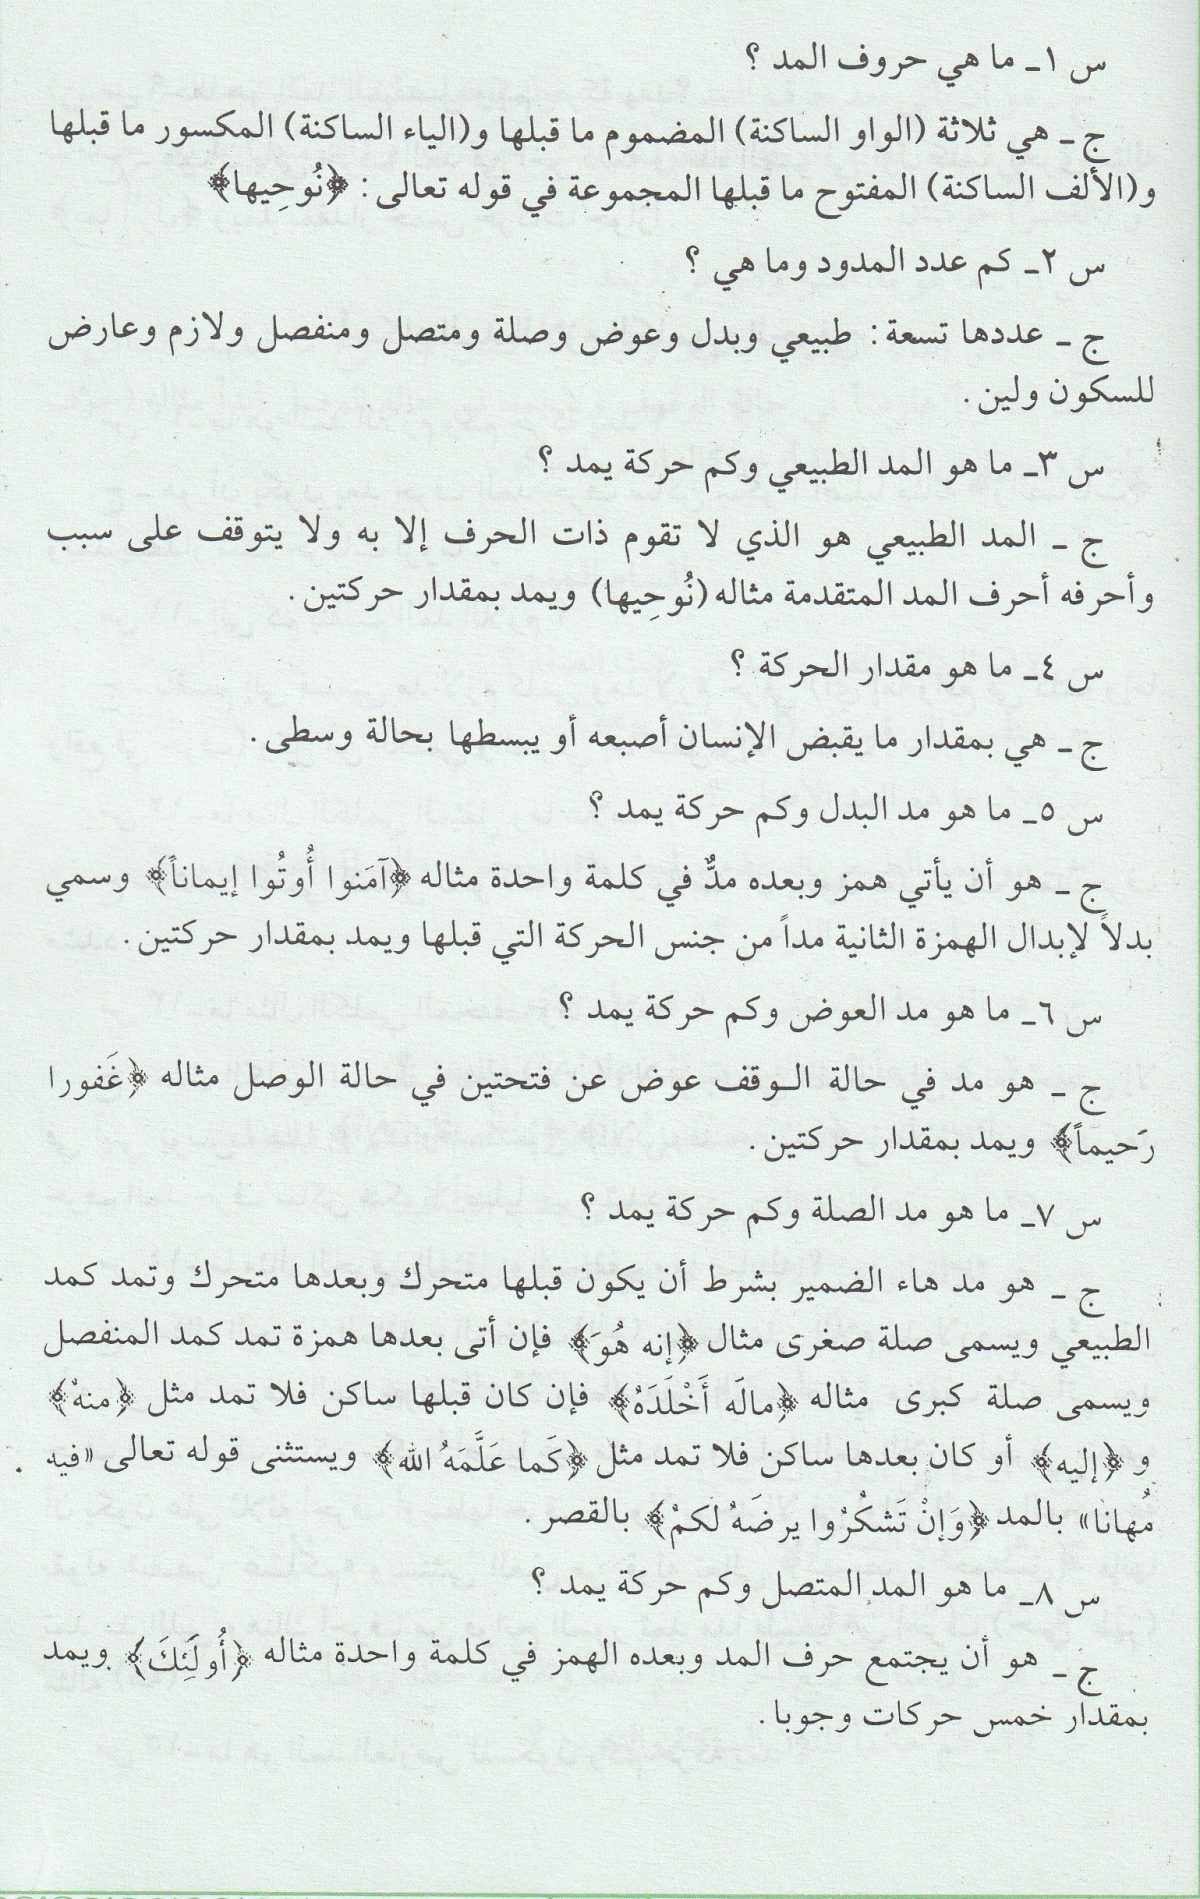 س ١ـ ما هي حروف المد ؟
ج ـ هي ثلاثة (الواو الساكنة) المضموم ما قبلها و(الياء الساكنة) المكسور ما قبلها
و(الألف الساكنة) المفتوح ما قبلها المجموعة في قوله تعالى : ﴿نُوحِيها﴾
س ٢ـ كم عدد المدود وما هي ؟
ج ـ عددها تسعة : طبيعي وبدل وعوض وصلة ومتصل ومنفصل ولازم وعارض
للسكون ولين .
س ٣ـ ما هو المد الطبيعي وكم حركة يمد ؟
ج ـ المد الطبيعي هو الذي لا تقوم ذات الحرف إلا به ولا يتوقف على سبب
وأحرفه أحرف المد المتقدمة مثاله (نُوحِيها) ويمد بمقدار حركتين .
س ٤ـ ما هو مقدار الحركة ؟
ج ـ هي بمقدار ما يقبض الإنسان أصبعه أو يبسطها بحالة وسطى .
س ٥ـ ما هو مد البدل وكم حركة يمد ؟
ج ـ هو أن يأتي همز وبعده مدٌّ في كلمة واحدة مثاله ﴿آمَنوا أُوتُوا إيماناً﴾ وسمي
بدلاً لإبدال الهمزة الثانية مداً من جنس الحركة التي قبلها ويمد بمقدار حركتين .
س ٦ـ ما هو مد العوض وكم حركة يمد ؟
ج ـ هو مد في حالة الـوقف عوض عن فتحتين في حالة الوصل مثاله ﴿غَفورا
رَحيماً﴾ ويمد بمقدار حركتين .
س ٧ـ ما هو مد الصلة وكم حركة يمد ؟
ج ـ هو مد هاء الضمير بشرط أن يكون قبلها متحرك وبعدها متحرك وتمد كمد
الطبيعي ويسمى صلة صغرى مثال ﴿إنه هُوَ﴾ فإن أتى بعدها همزة تمد كمد المنفصل
ويسمى صلة كبرى مثاله ﴿مالَه أَخْلَدَهُ﴾ فإن كان قبلها ساكن فلا تمد مثل ﴿منهُ﴾
و ﴿إليه﴾ أو كان بعدها ساكن فلا تمد مثل ﴿كَما عَلَّمَهُ الله﴾ ويستثنى قوله تعالى «فيه
مُهانا» بالمد ﴿وَإنْ تَشكُرْوا يرضَهُ لكمْ﴾ بالقصر .
س ٨ـ ما هو المد المتصل وكم حركة يمد ؟
ج ـ هو أن يجتمع حرف المد وبعده الهمز في كلمة واحدة مثاله ﴿أُولَئِكَ﴾ ويمد
بمقدار خمس حركات وجوبا .